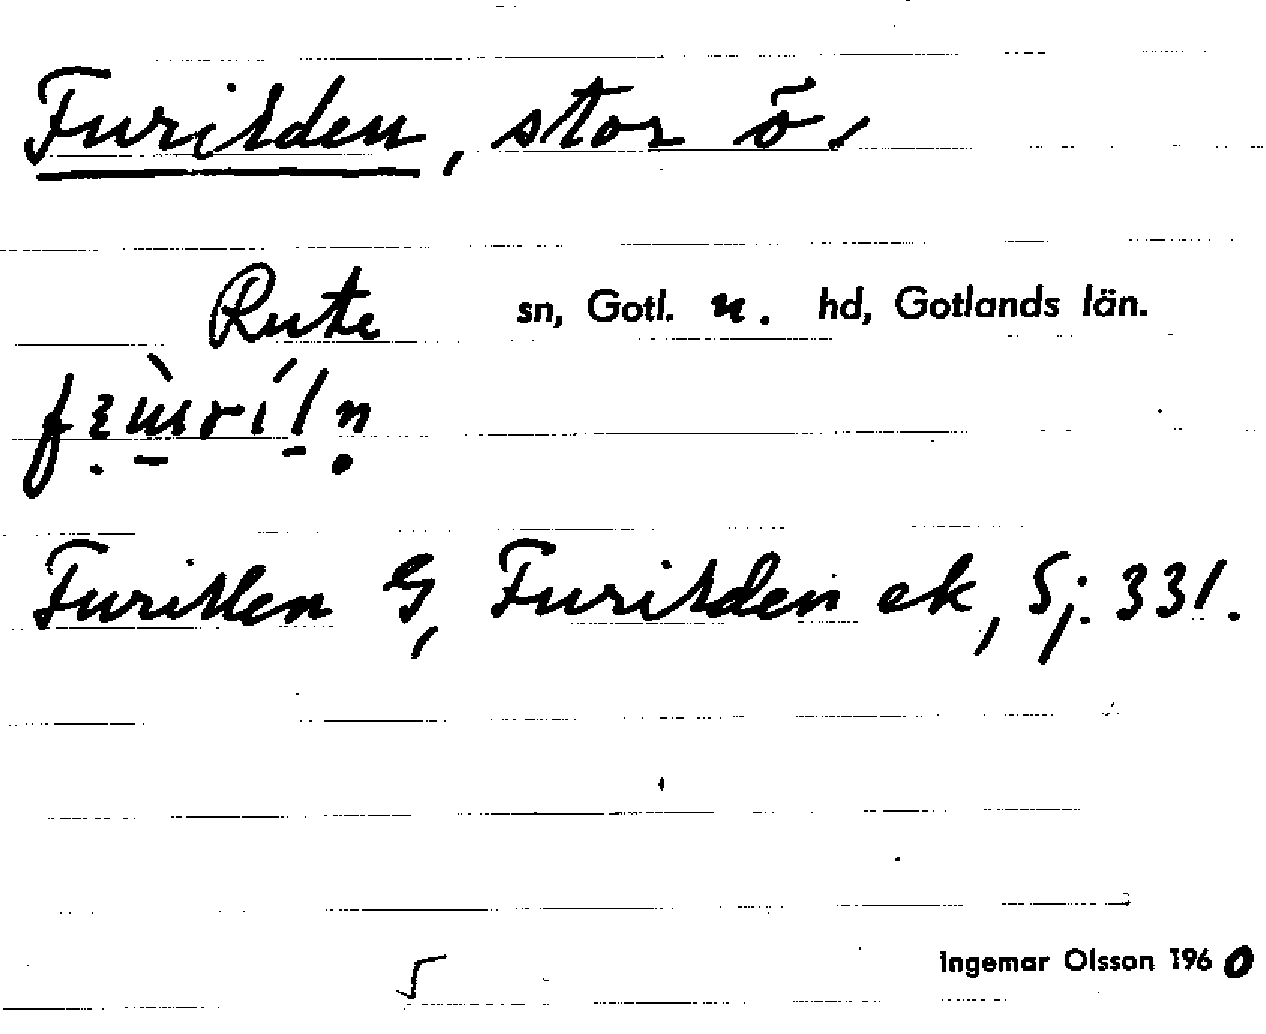 Furilden, stor ö.
Rute sn, Gotl. n. hd, Gotlands län.
Furillen G, Furilden ek, Sj. 331.
Ingemar Olsson 1960